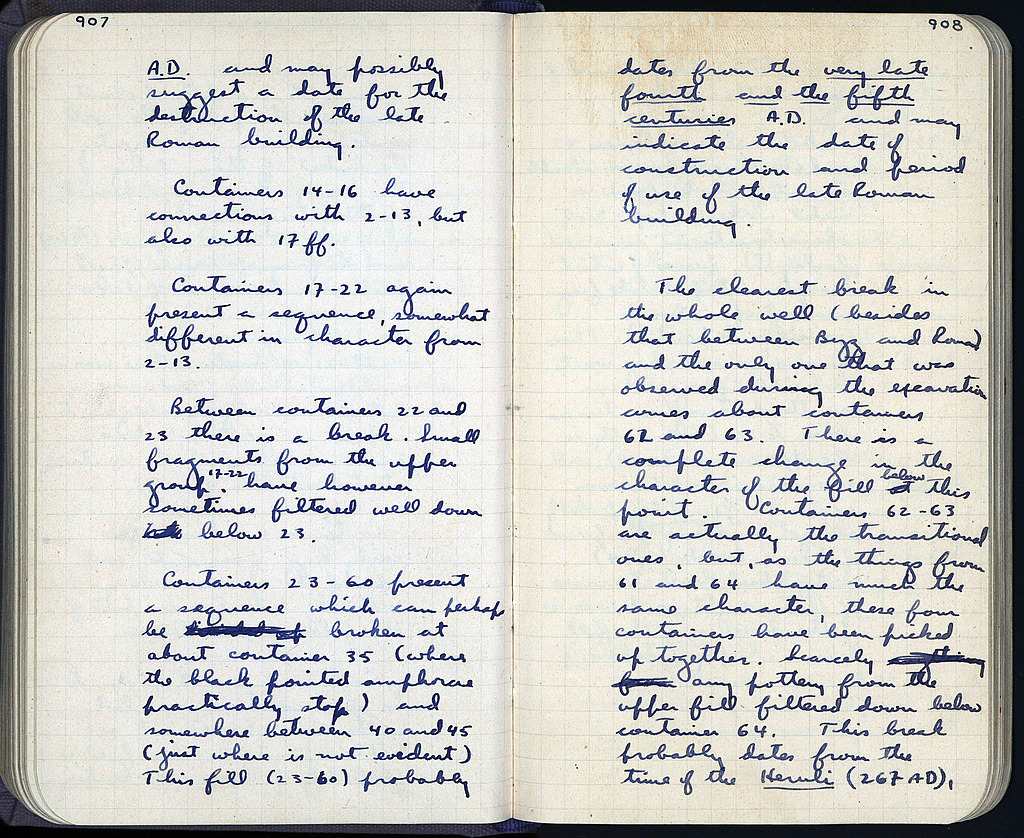 907
A.D. and may possibly
suggest a date for the
destruction of the late
Roman building.
Containers 14-16 have
connections with 2-13, but
also with 17 ff.
Containers 17-22 again
present a sequence, somewhat
different in character from
2-13.
Between containers 22 and
23 there is a break. Small
fragments from the upper
group 17-22 have however
sometimes filtered well down
below 23.
Containers 23-60 present
a sequence which can perhaps
be broken at
about container 35 (where
the black pointed amphorae
practically stop) and
somewhere between 40 and 45
(just where is not evident)
This fill (23-60) probably
908
dates from the very late
fourth and the fifth
centuries A.D. and may
indicate the date of
construction and period
of use of the late Roman
building.
The clearest break in
the whole well (besides
that between Byz and Roman)
and the only one that was
observed during the excavation
comes about containers
62 and 63. There is a
complete change in the
character of the fill below this
point. Containers 62-63
are actually the transitional
ones, but, as the things from
61 and 64 have much the
same character, these four
containers have been picked
up together. Scarcely
any pottery from the
upper fill filtered down below
container 64. This break
probably dates from the
time of the Heruli (267 AD),